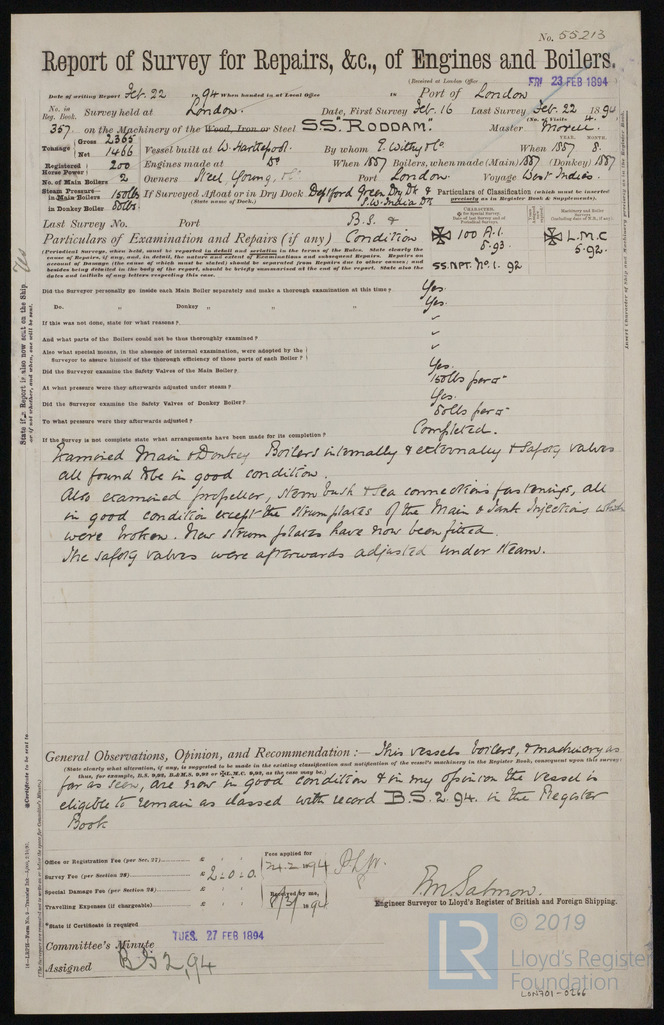 No. 55213
Report of Survey for Repairs, &c., of Engines and Boilers.
(Received at London Office FRI 23 FEB 1894
Date of writing Report Feb. 22 1894 When handed in at Local Office 18 Port of London
No. in Reg. Book. Survey held at London. Date, First Survey Feb. 16 Last Survey Feb. 22 1894
(No. of Visits 4.)
357 on the Machinery of the Wood, Iron or Steel S.S. "RODDAM." Master
Tonnage Gross 2365 Net 1466 Vessel built at W. Hartlepool. By whom E. Withy & Co When 1887 YEAR. MONTH. 8.
Registered Horse Power 200 Engines made at Do When 1887 Boilers, when made (Main) 1887 (Donkey) 1887
No. of Main Boilers 2 Owners Steel, Young, & Co Port London Voyage West Indies.
Steam Pressure— in Main Boilers 150lbs If Surveyed Afloat or in Dry Dock Deptford Green Dry Dk & S.W. India Dk
(State name of Dock.)
in Donkey Boiler 50lbs.
Particulars of Classification (which must be inserted precisely as in Register Book & Supplements).
Last Survey No. Port
Particulars of Examination and Repairs (if any) B.S. & Condition
CHARACTER.
✠ 100 A.1. 5.93.
SS.NPT. No. 1. 92
✠ L.M.C 5.92.
(Periodical Surveys, when held, must be reported in detail and seriatim in the terms of the Rules. State clearly the
cause of Repairs, if any, and, in detail, the nature and extent of Examinations and subsequent Repairs. Repairs on
account of Damage (the cause of which must be stated) should be separated from Repairs due to other causes; and
besides being detailed in the body of the report, should be briefly summarised at the end of the report. State also the
dates and initials of any letters respecting this case.
Did the Surveyor personally go inside each Main Boiler separately and make a thorough examination at this time? Yes.
Do. „ Donkey „ „ „ Yes.
If this was not done, state for what reasons?
And what parts of the Boilers could not be thus thoroughly examined?
Also what special means, in the absence of internal examination, were adopted by the
Surveyor to assure himself of the thorough efficiency of those parts of each Boiler?
Did the Surveyor examine the Safety Valves of the Main Boiler? Yes.
At what pressure were they afterwards adjusted under steam? 150lbs per □"
Did the Surveyor examine the Safety Valves of Donkey Boiler? Yes.
To what pressure were they afterwards adjusted? 50lbs per □"
If the Survey is not complete state what arrangements have been made for its completion? Completed.
Examined Main & Donkey Boilers internally & externally & Safety valves
all found to be in good condition.
Also examined propeller, stern bush & sea connections fastenings, all
in good condition except the strum plates of the Main & Tank Injections which
were broken. New strum plates have now been fitted.
The safety valves were afterwards adjusted under steam.
State if a Report is also now sent on the Ship. Yes
or if not whether, and when, one will be sent.
Insert Character of Ship and Machinery precisely as in the Register Book.
General Observations, Opinion, and Recommendation:— This vessels boilers, & machinery as
(State clearly what alteration, if any, is suggested to be made in the existing classification and notification of the vessel's machinery in the Register Book, consequent upon this survey:
thus, for example, B.S. 9,92, B.&M.S. 9,92 or ✠L.M.C. 9,92, as the case may be.)
far as seen, are now in good condition & in my opinion the vessel is
eligible to remain as classed with record B.S. 2.94. in the Register
Book
Office or Registration Fee (per Sec. 27) £
Survey Fee (per Section 28) £ 2. 0. 0.
Special Damage Fee (per Section 28) £
Travelling Expenses (if chargeable) £
Fees applied for 24.2.1894
Received by me, 8/3/1894
*State if Certificate is required
E.M. Salmon.
Engineer Surveyor to Lloyd's Register of British and Foreign Shipping.
Committee's Minute TUES. 27 FEB 1894
Assigned B.S 2,94
*Certificate to be sent to
LR © 2019
Lloyd's Register
Foundation
LON701-0266